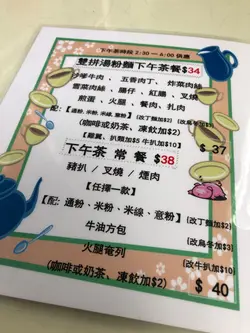 下午茶時段 2:30 — 6:00 供應
雙拼湯粉麵下午茶餐$34
沙嗲牛肉、五香肉丁、炸菜肉絲
雪菜肉絲、腸仔、紅腸、叉燒
煎蛋、火腿、餐肉、扎肉
配:【通粉、米粉、米線、意粉】(改丁麵加$2) (改烏冬加$3)
(咖啡或奶茶、凍飲加$2)
$ 37
【雞翼、扒加$5 牛扒加$10】
下午茶 常 餐 $38
豬扒 / 叉燒 / 煙肉
【任擇一款】
【配: 通粉、米粉、米線、意粉】(改丁麵加$2)
(改烏冬加$3)
牛油方包
火腿奄列
(改牛扒加$10)
(咖啡或奶茶、凍飲加$2)
$ 40